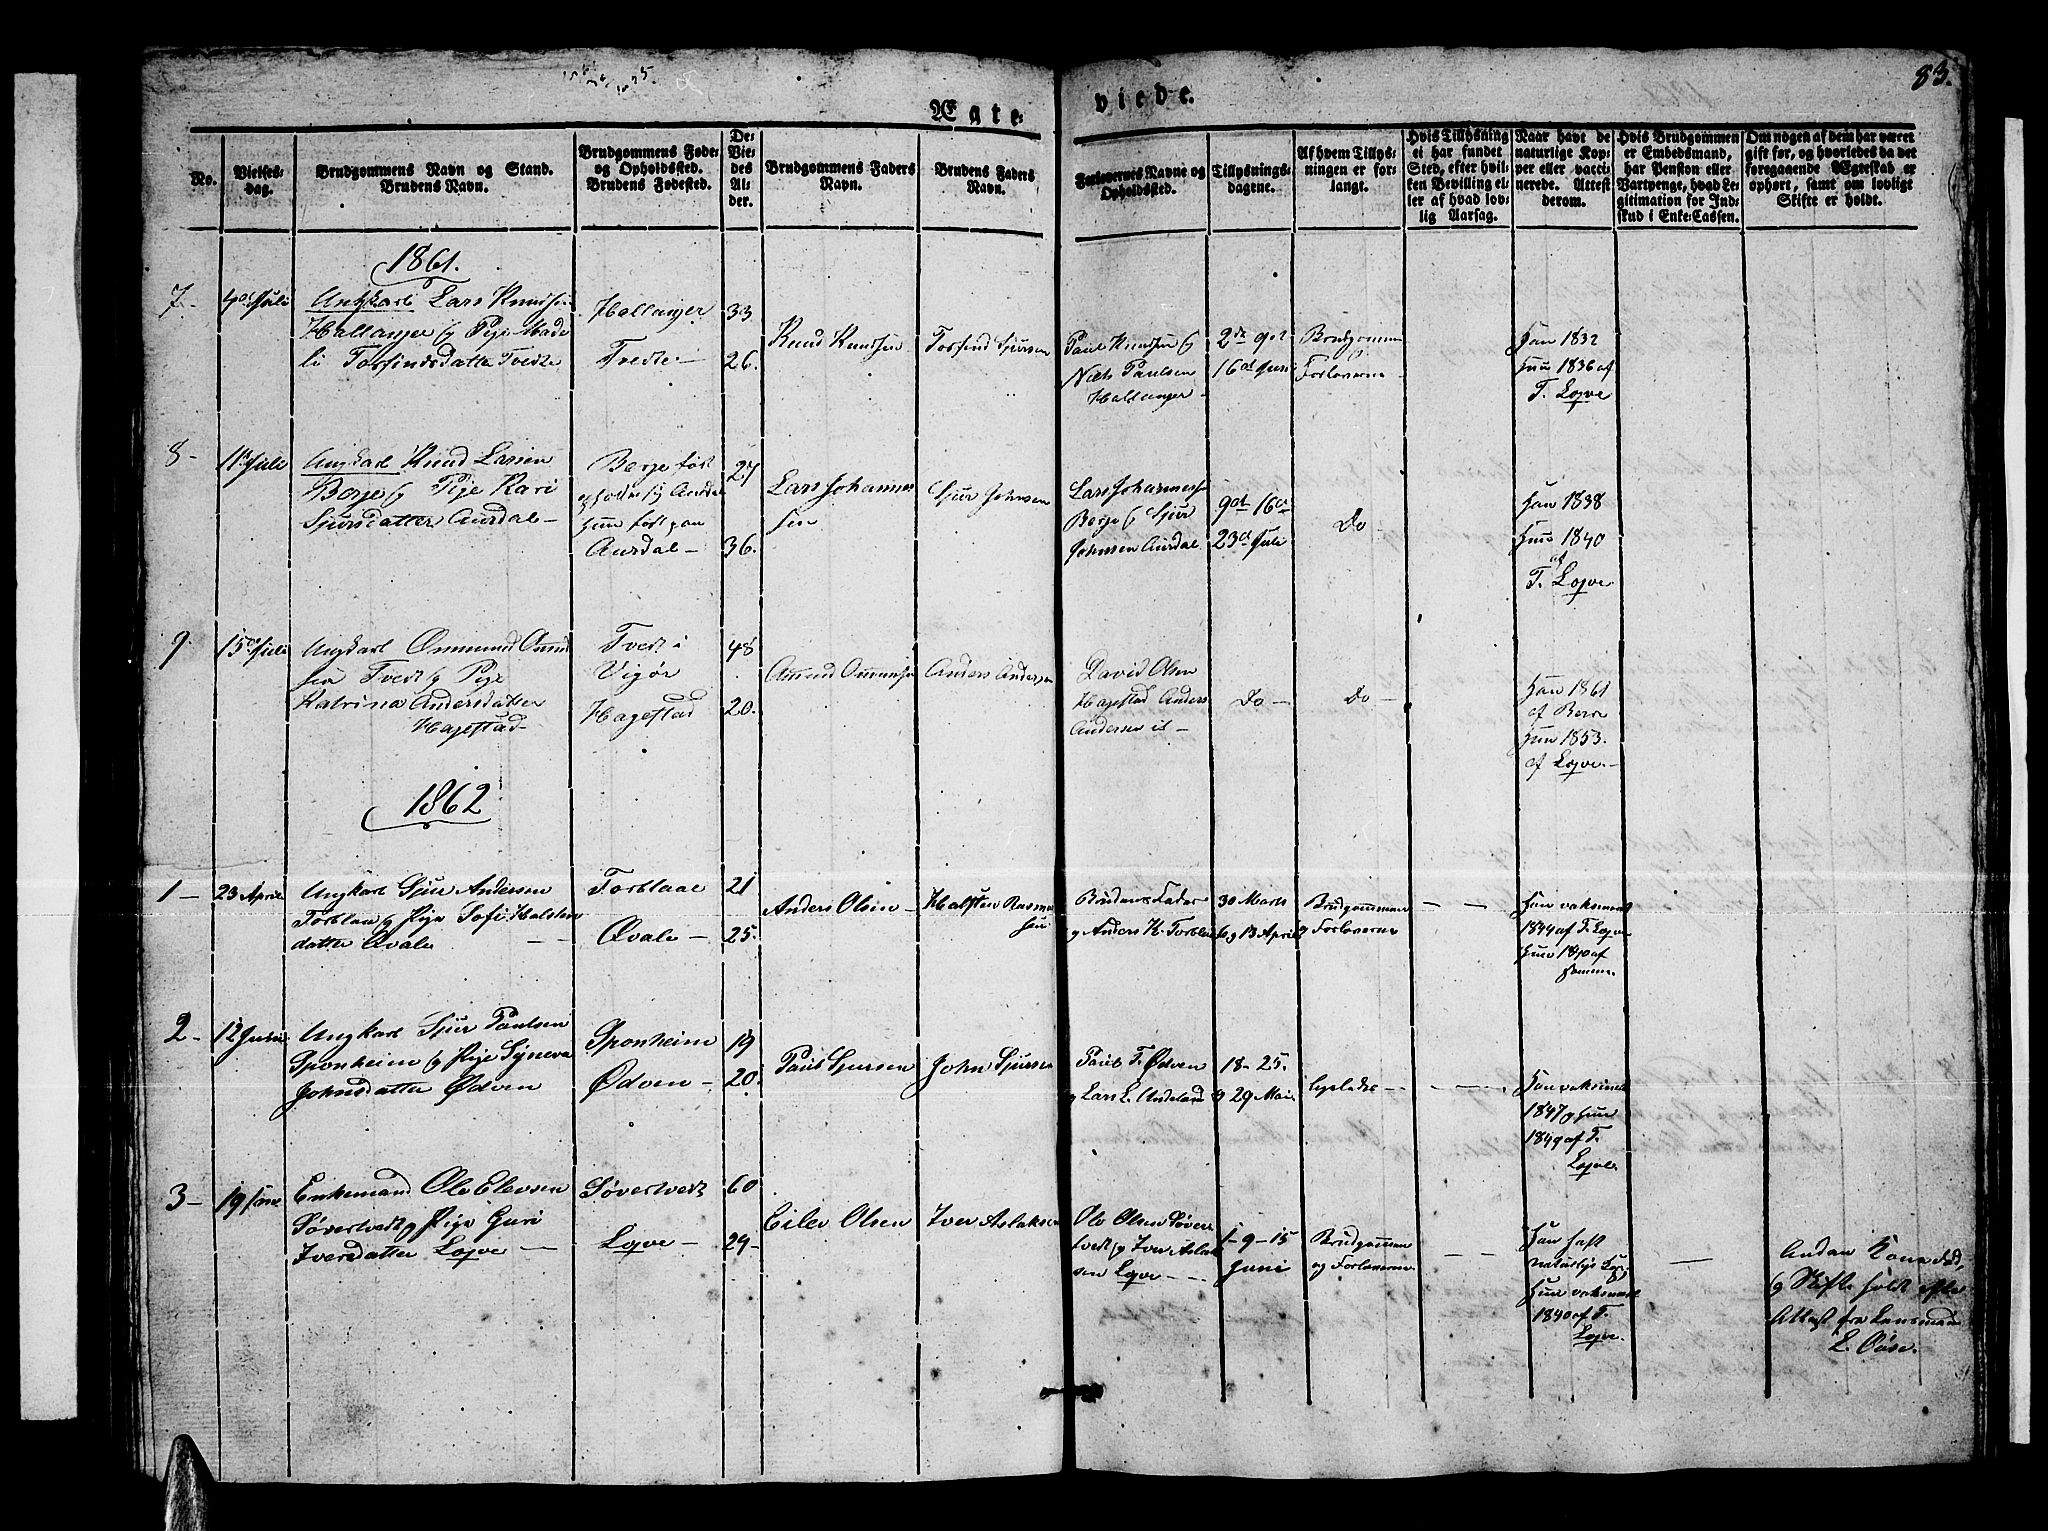 83.
Ægte-
viede.
No.
Vielses-
dag.
Brudgommens Navn og Stand.
Brudens Navn.
Brudgommens Føde-
og Opholdssted.
Brudens Fødested.
De
Vie-
des
Al-
der.
Brudgommens Faders
Navn.
Brudens Faders
Navn.
Forlovernes Navne og
Opholdssted.
Tillysnings-
dagene.
Af hvem Tillys-
ningen er for-
langt.
Hvis Tillysning
ei har fundet
Sted, efter hvil-
ken Bevilling el-
ler af hvad lov-
lig Aarsag.
Naar havt de
naturlige Kop-
per eller vacci-
nerede. Attest
derom.
Hvis Brudgommen
er Embedsmand,
har Pension eller
Vartpenge, hvad Le-
gitimation for Ind-
skud i Enke-Cassen.
Om nogen af dem har været
gift før, og hvorledes da det
foregaaende Ægteskab er
ophørt, samt om lovligt
Skifte er holdt.
1861.
7-
4de Juli
Ungkarl Lars Knudsen
Hallanger og Pige Made
li Torfindsdatter Tvedte
Hallanger
Tvedte-
33
26.
Knud Knudsen
Torfind Sjursen
Paul Knudsen og
Niels Paulsen
Hallanger-
2de 9de
16de Juni
Brudgommen
Forloverne-
Han 1832
Hun 1836 af
T. Lojve
8-
Juli
Ungkarl Knud Larsen
Berje og Pige Kari
Sjursdatter Aurdal-
Berje født
Aurdal
Hun født paa
Aurdal-
27
36.
Lars Johannes
sen
Sjur Johnsen
Lars Johannessen
Berje og Sjur
Johnsen Aurdal
9de 16de
23de Juli
Do-
Han 1838
Hun 1840
af
T. Lojve
9.
15de Juli
Ungkarl Ommund Omund
sen Tvedt og Pige
Katrina Andersdatter
Hagestad-
Tvedt i
Vigør
Hagestad
48
20.
Anders Andersen
David Olsen
Hagestad Anders
Andersen ib-
Do-
Do-
Han 1861
af
Hun 1853.
af Lojve-
1862
1-
23 April
Ungkarl Sjur Andersen
Torblaa og Pige Sofi Halstens
datter Øvale
Torblaae
Øvale-
21
25.
Anders Olsen-
Halsten Rasmus
sen
Brudens Fader
og Anders K. Torblaa
30 Marts
6 og 13 April
Brudgommen
og Forloverne
Han vaksineret
1844 af T. Lojve
Hun 1840 af
samme.
2-
12 Juni
Ungkarl Sjur Paulsen
Sponheim og Pige Syneva
Johnsdatter Ødven
Sponheim
Ødven-
19
20.
Paul Sjursen
John Sjursen
Paul T. Ødven
og Lars L.
18-25.
og 29 Mai
ligeledes-
Han vaksineret
1847 og Hun
1849 af T.
Lojve
3-
19 Juni
Enkemand Ole Elevsen
Søvertvedt og Pige Guri
Iversdatter Lojve-
Søvertvedt
Lojve-
60
29-
Eilev Olsen
Iver Aslaksen
Ole Olsen Søver
tvedt og Iver Aslak
sen Lojve-
1-9-15
Juni
Brudgommen
og Forloverne
Han haft
naturlige Kop.
Hun vaksineret
1840 af T.
Lojve.
Andan Kone død,
og Skifte holdt efter
Attest fra Lensmand
L.